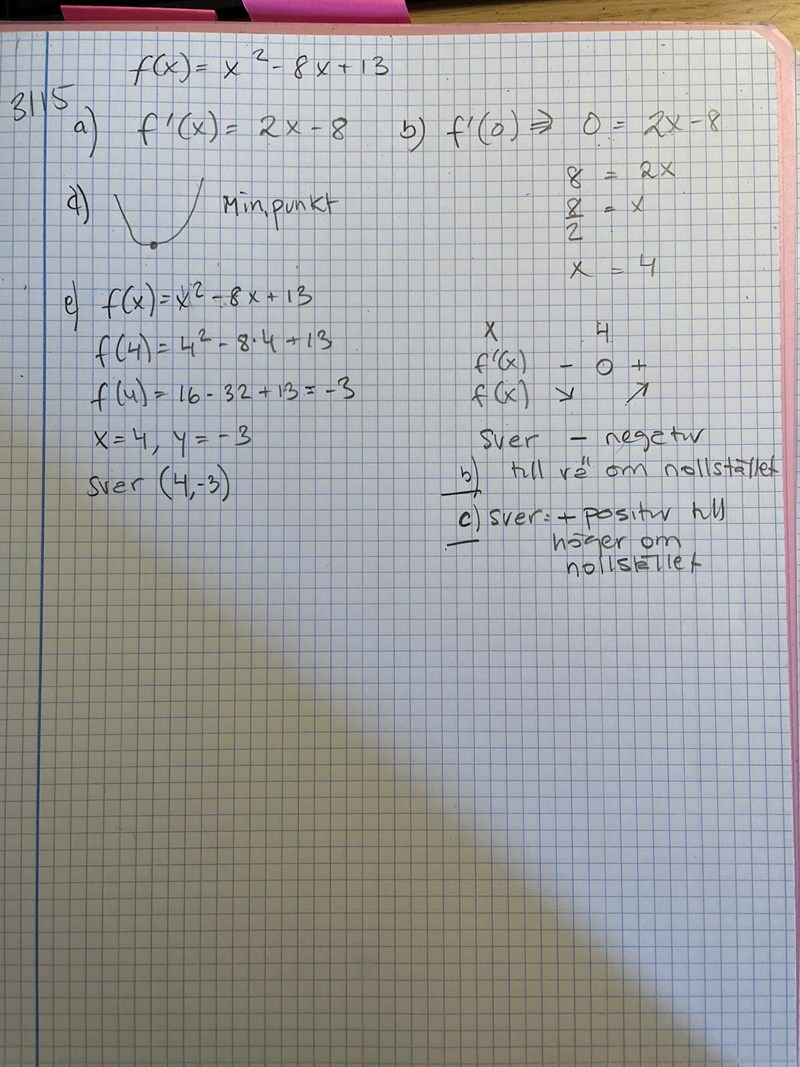 f(x) = x² - 8x + 13
3115
a) f'(x) = 2x - 8
b) f'(0) ⇒ 0 = 2x - 8
8 = 2x
8/2 = x
x = 4
d) Min.punkt
e) f(x) = x² - 8x + 13
f(4) = 4² - 8·4 + 13
f(4) = 16 - 32 + 13 = -3
x = 4, y = -3
sver (4,-3)
x 4
f'(x) - 0 +
f(x) ↘ ↗
sver - negativ
b) till vä" om nollstället
c) sver: + positiv till
höger om
nollstället